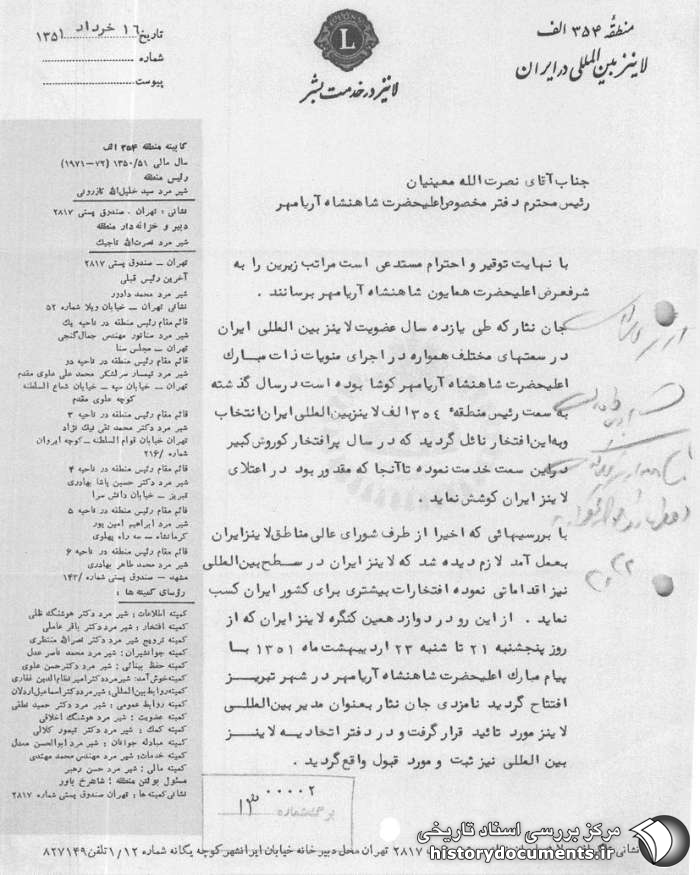 منطقهٔ ۳۵۴ الف
لاینز بین‌المللی در ایران
L
لاینز در خدمت بشر
تاریخ ۱۶ خرداد ۱۳۵۱
شماره
پیوست
جناب آقای نصرت الله معینیان
رئیس محترم دفتر مخصوص اعلیحضرت شاهنشاه آریامهر
با نهایت توقیر و احترام مستدعی است مراتب زیرین را به
شرفعرض اعلیحضرت همایون شاهنشاه آریامهر برسانند .
جان نثار که طی یازده سال عضویت لاینز بین المللی ایران
در سمتهای مختلف همواره در اجرای منویات ذات مبارك
اعلیحضرت شاهنشاه آریامهر کوشا بوده است در سال گذشته
به سمت رئیس منطقهٔ ۳۵۴ الف لاینز بین المللی ایران انتخاب
وبه این افتخار نائل گردید که در سال پر افتخار کوروش کبیر
در این سمت خدمت نموده تا آنجا که مقدور بود در اعتلای
لاینز ایران کوشش نماید .
با بررسیهائی که اخیرا از طرف شورای عالی مناطق لاینز ایران
بعمل آمد لازم دیده شد که لاینز ایران در سطح بین المللی
نیز اقداماتی نموده افتخارات بیشتری برای کشور ایران کسب
نماید . از این رو در دوازدهمین کنگره لاینز ایران که از
روز پنجشنبه ۲۱ تا شنبه ۲۳ اردیبهشت ماه ۱۳۵۱ با
پیام مبارك اعلیحضرت شاهنشاه آریامهر در شهر تبریز
افتتاح گردید نامزدی جان نثار بعنوان مدیر بین المللی
لاینز مورد تائید قرار گرفت و در دفتر اتحادیه لاینز
بین المللی نیز ثبت و مورد قبول واقع گردید .
کابینه منطقه ۳۵۴ الف
سال مالی ۱۳۵۰/۵۱ (۷۲–۱۹۷۱)
رئیس منطقه
شیر مرد سید خلیل‌الله کازرونی
نشانی : تهران . صندوق پستی ۲۸۱۷
دبیر و خزانه‌دار منطقه
شیر مرد نصرت‌الله تاجیك
تهران – صندوق پستی ۲۸۱۷
آخرین رئیس قبلی
شیر مرد محمد دادور
نشانی تهران – خیابان ویلا شماره ۵۲
قائم مقام رئیس منطقه در ناحیه یك
شیر مرد سناتور مهندس جمال گنجی
تهران – مجلس سنا
قائم مقام رئیس منطقه در ناحیه دو
شیر مرد تیمسار سرلشکر محمد علی علوی مقدم
تهران – خیابان سپه – خیابان شعاع السلطنه
کوچه علوی مقدم
قائم مقام رئیس منطقه در ناحیه ۳
شیر مرد دکتر محمد تقی نیك نژاد
تهران خیابان قوام السلطنه – کوچه ایروان
شماره ۲۱۶/
قائم مقام رئیس منطقه در ناحیه ۴
شیر مرد دکتر حسین پاشا بهادری
تبریز – خیابان دانش سرا
قائم مقام رئیس منطقه در ناحیه ۵
شیر مرد ابراهیم امین پور
کرمانشاه – سه راه پهلوی
قائم مقام رئیس منطقه در ناحیه ۶
شیر مرد محمد طاهر بهادری
مشهد – صندوق پستی شماره ۱۴۳/
رؤسای کمیته ها :
کمیته اطلاعات : شیر مرد دکتر هوشنگ ظلی
کمیته افتخار : شیر مرد دکتر باقر عاملی
کمیته ترویج شیر مرد دکتر نصرالله منتظری
کمیته جوانشیران : شیر مرد محمد ناصر عدل
کمیته حفظ بینائی : شیر مرد دکتر حسن علوی
کمیته خوش‌آمد: شیر مرد دکتر امیر نظام‌الدین غفاری
کمیته روابط بین‌المللی: شیر مرد دکتر اسماعیل اردلان
کمیته روابط عمومی : شیر مرد دکتر حمید نطقی
کمیته عضویت : شیر مرد هوشنگ اخلاقی
کمیته کمك : شیر مرد دکتر تیمور کلالی
کمیته مبادله جوانان : شیر مرد ابوالحسن معدل
کمیته خدمات: شیر مرد مهندس محمد مهتدی
کمیته مالی : شیر مرد حسن رهبر
مسئول بولتن منطقه : شاهرخ یاور
نشانی کمیته ها : تهران صندوق پستی شماره ۲۸۱۷
۰۰۰۰۲
برگ شماره ۱۳
۲۸۱۷ تهران محل دبیرخانه خیابان ایرانشهر کوچه یگانه شماره ۱/۱۲ تلفن ۸۲۷۱۴۹
مرکز بررسی اسناد تاریخی
historydocuments.ir